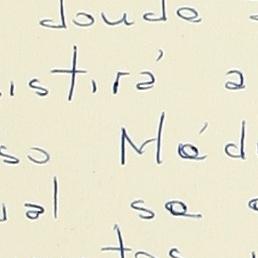 donde
istirá a
so Méd
ual se
tos